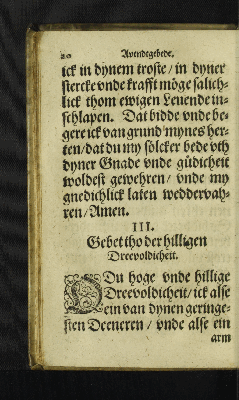 20 Avendtgebede.
ick in dynem troste / in dyner
stercke vnde krafft möge salich-
lick thom ewigen Leuende in-
schlapen. Dat bidde vnde be-
gere ick van grund mynes her-
ten / dat du my sölcker bede vth
dyner Gnade vnde güdicheit
woldest gewehren / vnde my
gnedichlick laten weddervah-
ren / Amen.
III.
Gebet tho der hilligen
Dreevoldicheit.
O Du hoge vnde hillige
Dreevoldicheit / ick alse
ein van dynen geringe-
sten Deeneren / vnde alse ein
arm